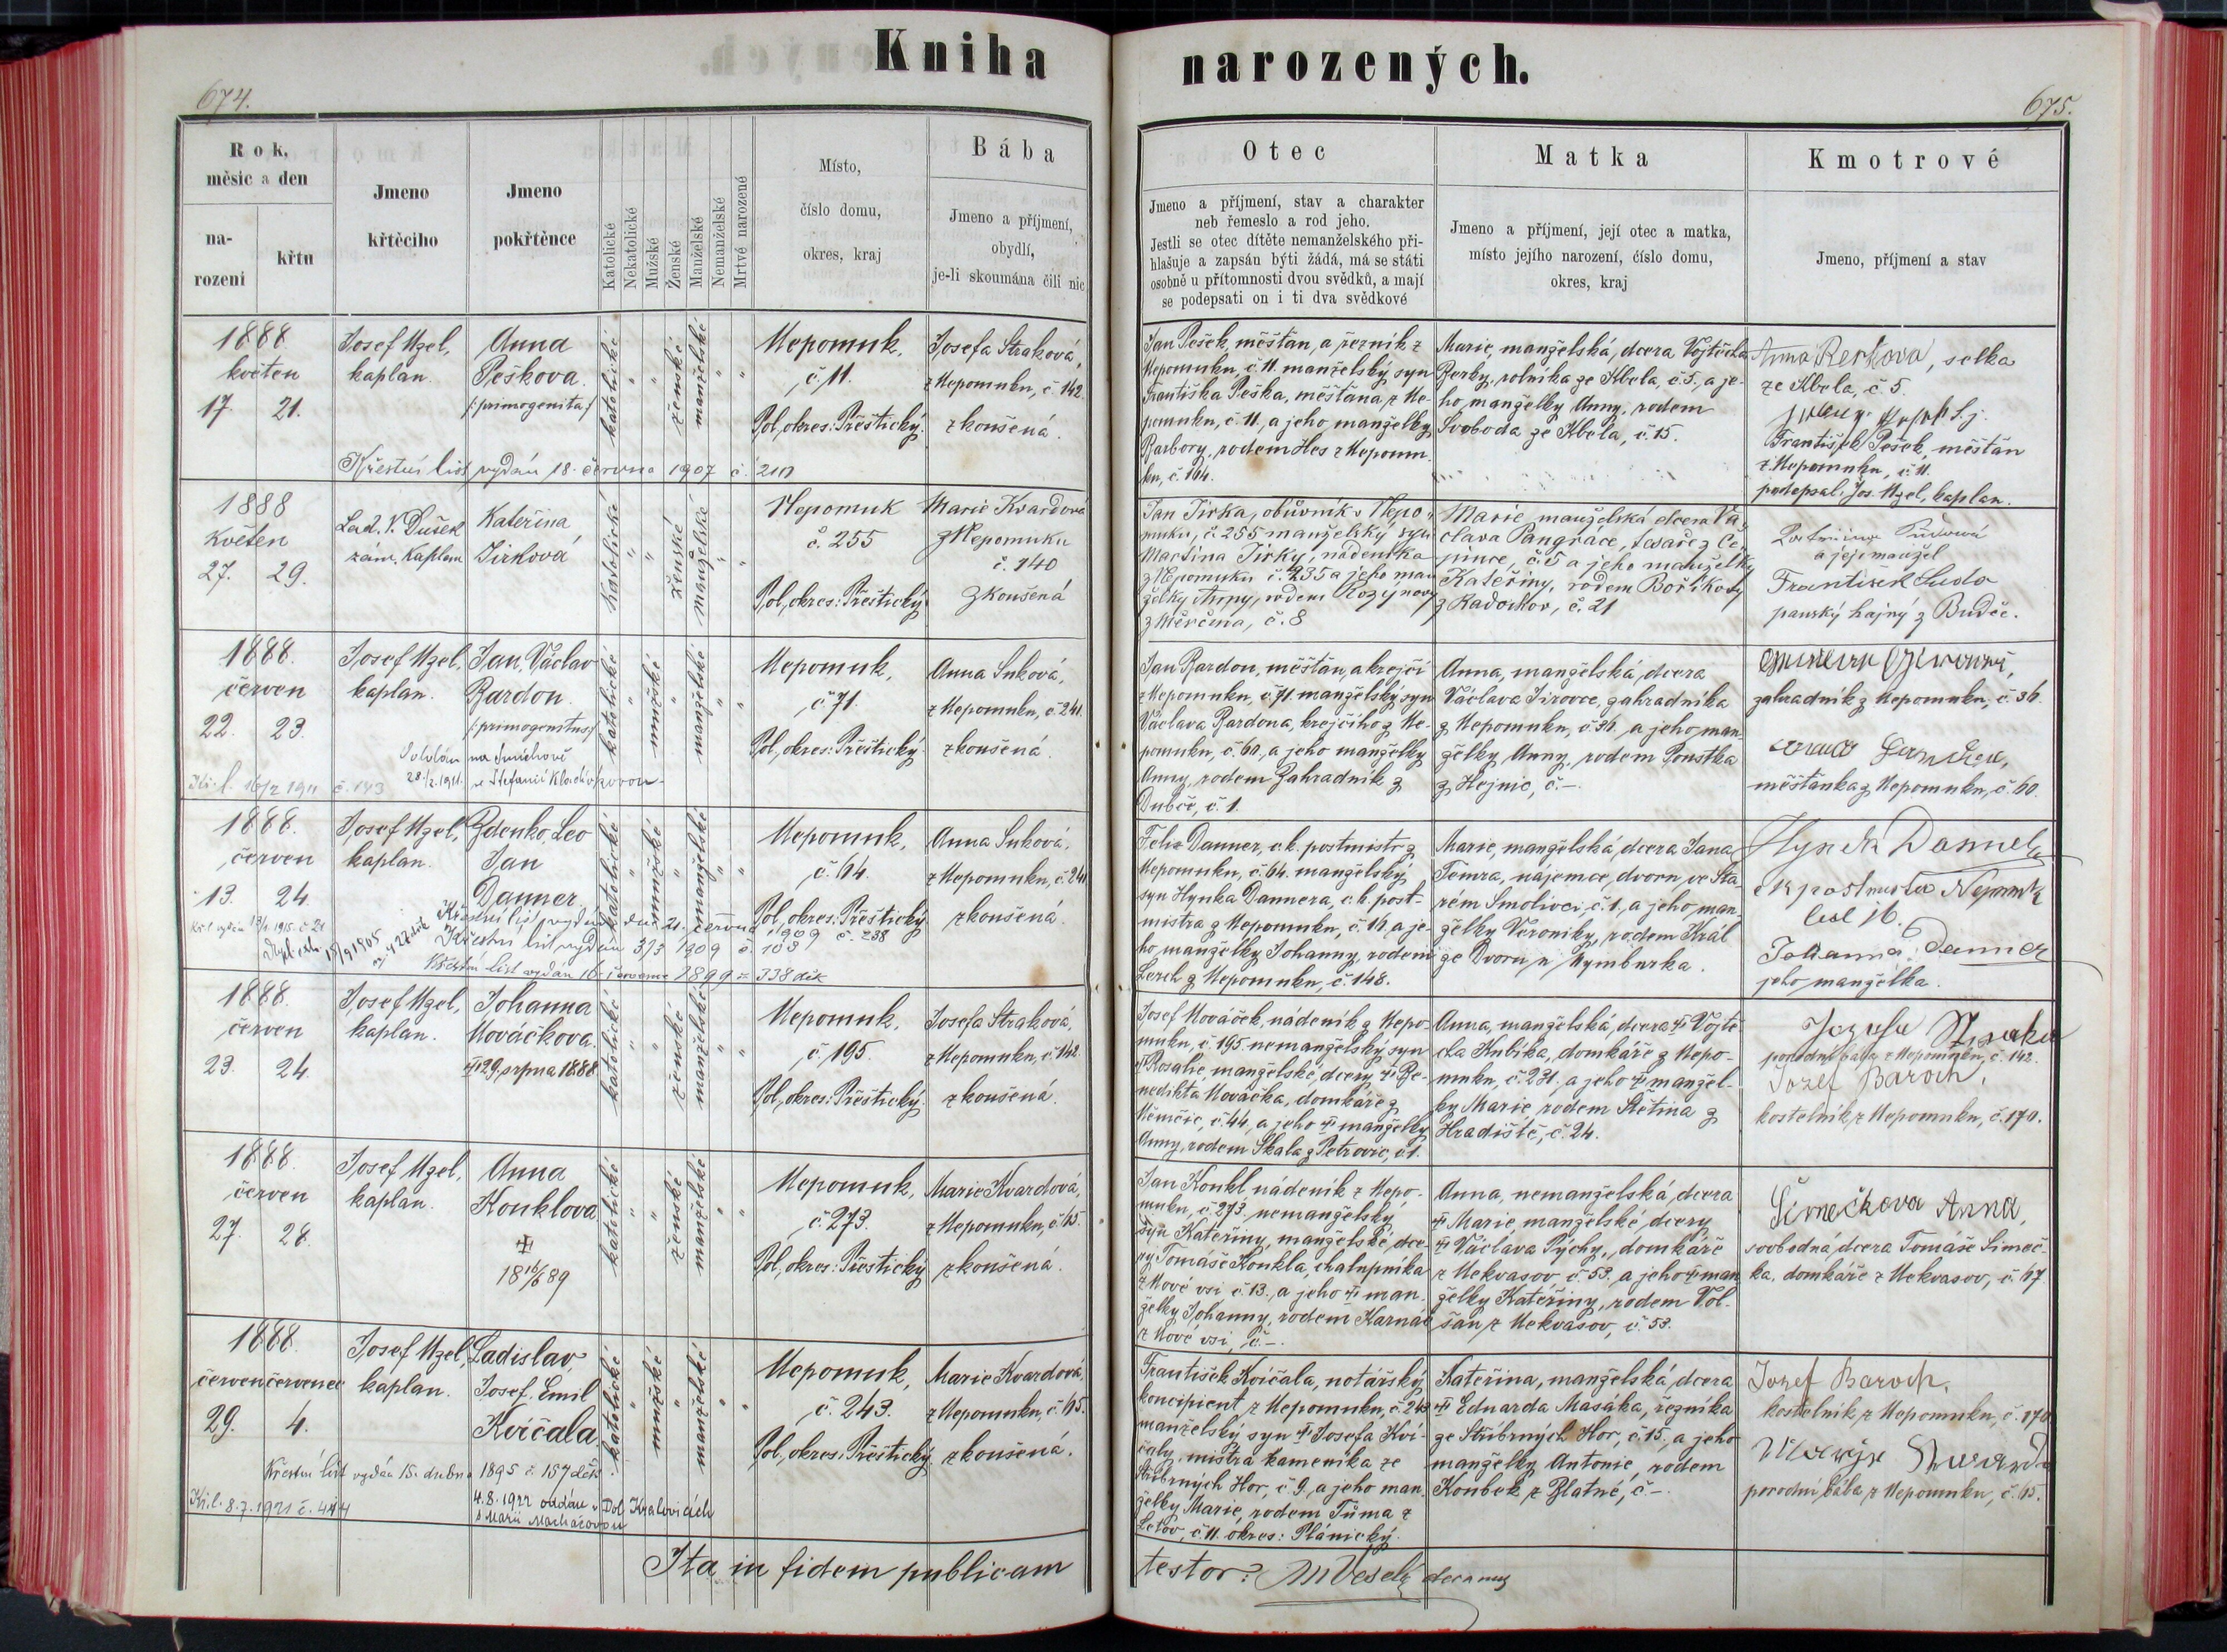 Kniha narozených.
674.
675.
Rok, měsíc a den
narození
křtu
Jmeno křtěcího
Jmeno pokřtěnce
Katolické
Nekatolické
Mužské
Ženské
Manželské
Nemanželské
Mrtvé narozené
Místo,
číslo domu,
okres, kraj
Bába
Jmeno a příjmení,
obydlí,
je-li skoumána čili nic
Otec
Jmeno a příjmení, stav a charakter
neb řemeslo a rod jeho.
Jestli se otec dítěte nemanželského při-
hlašuje a zapsán býti žádá, má se státi
osobně u přítomnosti dvou svědků, a mají
se podepsati on i ti dva svědkové
Matka
Jmeno a příjmení, její otec a matka,
místo jejího narození, číslo domu,
okres, kraj
Kmotrové
Jmeno, příjmení a stav
1888
květen
17. 21.
Josef Uzel,
kaplan.
Anna
Peškova.
/:primogenita:/
katolické
ženské
manželské
Nepomuk,
č. 11.
Pol. okres: Přeštický.
Josefa Straková,
z Nepomuku, č. 142.
zkoušená.
Křestní list vydán 18. června 1907 č.
Jan Pešek, měšťan, a řezník z
Nepomuku, č. 11. manželský syn
Františka Peška, měšťana z Ne-
pomuku, č. 11, a jeho manželky
Barbory, rodem Hes z Nepomu-
ku, č. 164.
Marie, manželská, dcera Vojtěcha
Berky, rolníka ze Kbela, č. 5, a je-
ho manželky Anny, rodem
Svoboda ze Kbela, č. 15.
Anna Berkova, selka
ze Kbela, č. 5.
František Pešek, měšťan
z Nepomuku, č. 11.
podepsal: Jos. Uzel, kaplan.
1888
Květen
27. 29.
Lad. V. Dušek
zám. kaplan
Kateřina
Jirková
Katolické
ženské
manželské
Nepomuk
č. 255
Pol. okres: Přeštický
Marie Kvardová
z Nepomuku
č. 140
zkoušená
Jan Jirka, obuvník v Nepo-
muku, č. 255 manželský syn
Martina Jirky, nádeníka
z Nepomuku č. 235 a jeho man-
želky Anny, rodem
z Měrčína, č. 8
Marie manželská dcera Vá-
clava Pangráce, tesaře z Če-
pince, č. 5 a jeho manželky
Kateřiny, rodem Boříkovy
z Radochov, č. 21
a její manžel
František Suda
panský hajný z Budče.
1888.
červen
22. 23.
Josef Uzel,
kaplan.
Jan, Václav
Bardon.
/:primogenitus:/
katolické
mužské
manželské
Nepomuk,
č. 71.
Pol. okres: Přeštický
Anna Suková,
z Nepomuku, č. 241.
zkoušená.
na Smíchově
28./2. 1911.
16/2 1911 č. 143
Jan Bardon, měšťan, a krejčí
z Nepomuku, č. 71. manželský syn
Václava Bardona, krejčího z Ne-
pomuku, č. 60, a jeho manželky
Anny, rodem Zahradník z
Dubče, č. 1.
Anna, manželská, dcera
Václava Jirovce, zahradníka
z Nepomuku, č. 36. a jeho man-
želky Anny, rodem Poustka
z Hejnic, č. –.
zahradník z Nepomuku, č. 36.
měšťanka z Nepomuku, č. 60.
1888.
červen
13. 24.
Josef Uzel,
kaplan.
Zdenko, Leo
Jan
Danner
katolické
mužské
manželské
Nepomuk,
č. 64.
Pol. okres: Přeštický
Anna Suková,
z Nepomuku, č. 241
zkoušená.
Křestní list vydán dne 21. června 1909 č. 238
Křestní list vydán 3/3 1909 č. 103
Křestní list vydán 16. července 1899 č. 338 děk
Felix Danner, c. k. postmistr z
Nepomuku, č. 64. manželský
syn Hynka Dannera, c. k. post-
mistra z Nepomuku, č. 16, a je-
ho manželky Johanny, rodem
Lerch z Nepomuku, č. 148.
Marie, manželská, dcera Jana
Témra, nájemce dvoru ve Sta-
rém Smolivci č. 1, a jeho man-
želky Veroniky, rodem Král
ze Dvorů u Nymburka.
Hynek Danner
Johanna Danner
jeho manželka.
1888.
červen
23. 24.
Josef Uzel,
kaplan.
Johanna
Nováčkova.
† 29. srpna 1888
katolické
ženské
manželské
Nepomuk,
č. 195.
Pol. okres: Přeštický.
Josefa Straková,
z Nepomuku, č. 142
zkoušená.
Josef Nováček, nádeník z Nepo-
muku, č. 195. nemanželský syn
† Rosalie manželské dcery † Be-
nedikta Nováčka, domkáře z
Němčic, č. 44, a jeho † manželky
Anny, rodem Skala z Petrovic, č. 1.
Anna, manželská, dcera † Vojtě-
cha Kubíka, domkáře z Nepo-
muku, č. 231. a jeho † manžel-
ky Marie, rodem Štětina z
Hradiště, č. 24.
porodní bába z Nepomuku, č. 142.
Jozef Baroch,
kostelník z Nepomuku, č. 170.
1888.
červen
27. 28.
Josef Uzel,
kaplan.
Anna
Kouklova
†
18 16/6 89
katolické
ženské
manželské
Nepomuk,
č. 273.
Pol. okres: Přeštický
Marie Kvardová,
z Nepomuku, č. 65.
zkoušená.
Jan Koukl, nádeník z Nepo-
muku, č. 273. nemanželský
syn Kateřiny, manželské dce-
ry Tomáše Koukla, chalupníka
z Nové vsi č. 13., a jeho † man-
želky Johanny, rodem Karnáš
z Nové vsi, č. –.
Anna, nemanželská, dcera
† Marie manželské dcery
† Václava Pýchy, domkáře
z Nekvasov, č. 53. a jeho † man-
želky Kateřiny, rodem Vol-
šan z Nekvasov, č. 53.
Šimečkova Anna,
svobodná, dcera Tomáše Šimeč-
ka, domkáře z Nekvasov, č. 67.
1888.
červen červenec
29. 4.
Josef Uzel,
kaplan.
Ladislav
Josef, Emil
Kvíčala
katolické
mužské
manželské
Nepomuk,
č. 243.
Pol. okres: Přeštický
Marie Kvardová,
z Nepomuku, č. 65.
zkoušená.
Křestní list vydán 15. dubna 1895 č. 157 děk.
Kř. l. 8.7.1921 č. 444
4.8.1922 oddán v Dol. Kralovicích
s Marií Macháčovou
František Kvíčala, notářský
koncipient z Nepomuku, č. 243
manželský syn † Josefa Kví-
čaly, mistra kameníka ze
Stříbrných Hor, č. 9, a jeho man-
želky Marie, rodem Tůma z
Letov, č. 11. okres: Plánický.
Kateřina, manželská, dcera
† Eduarda Masáka, řezníka
ze Stříbrných Hor, č. 15, a jeho
manželky Antonie, rodem
Koubek z Blatné, č. –.
Jozef Baroch,
kostelník z Nepomuku, č. 170
porodní bába z Nepomuku, č. 65.
Ita in fidem publicam
testor: M Veselý decanus